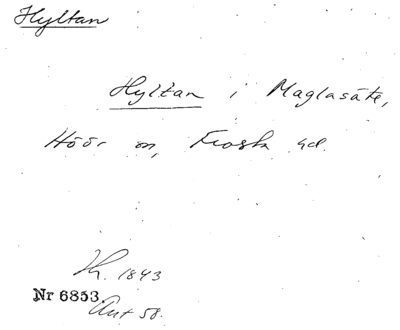 Hyltan
Hyltan i Maglasäte,
Höör sn, Frosta hd.
1843
Nr 6853.
Ant 58.